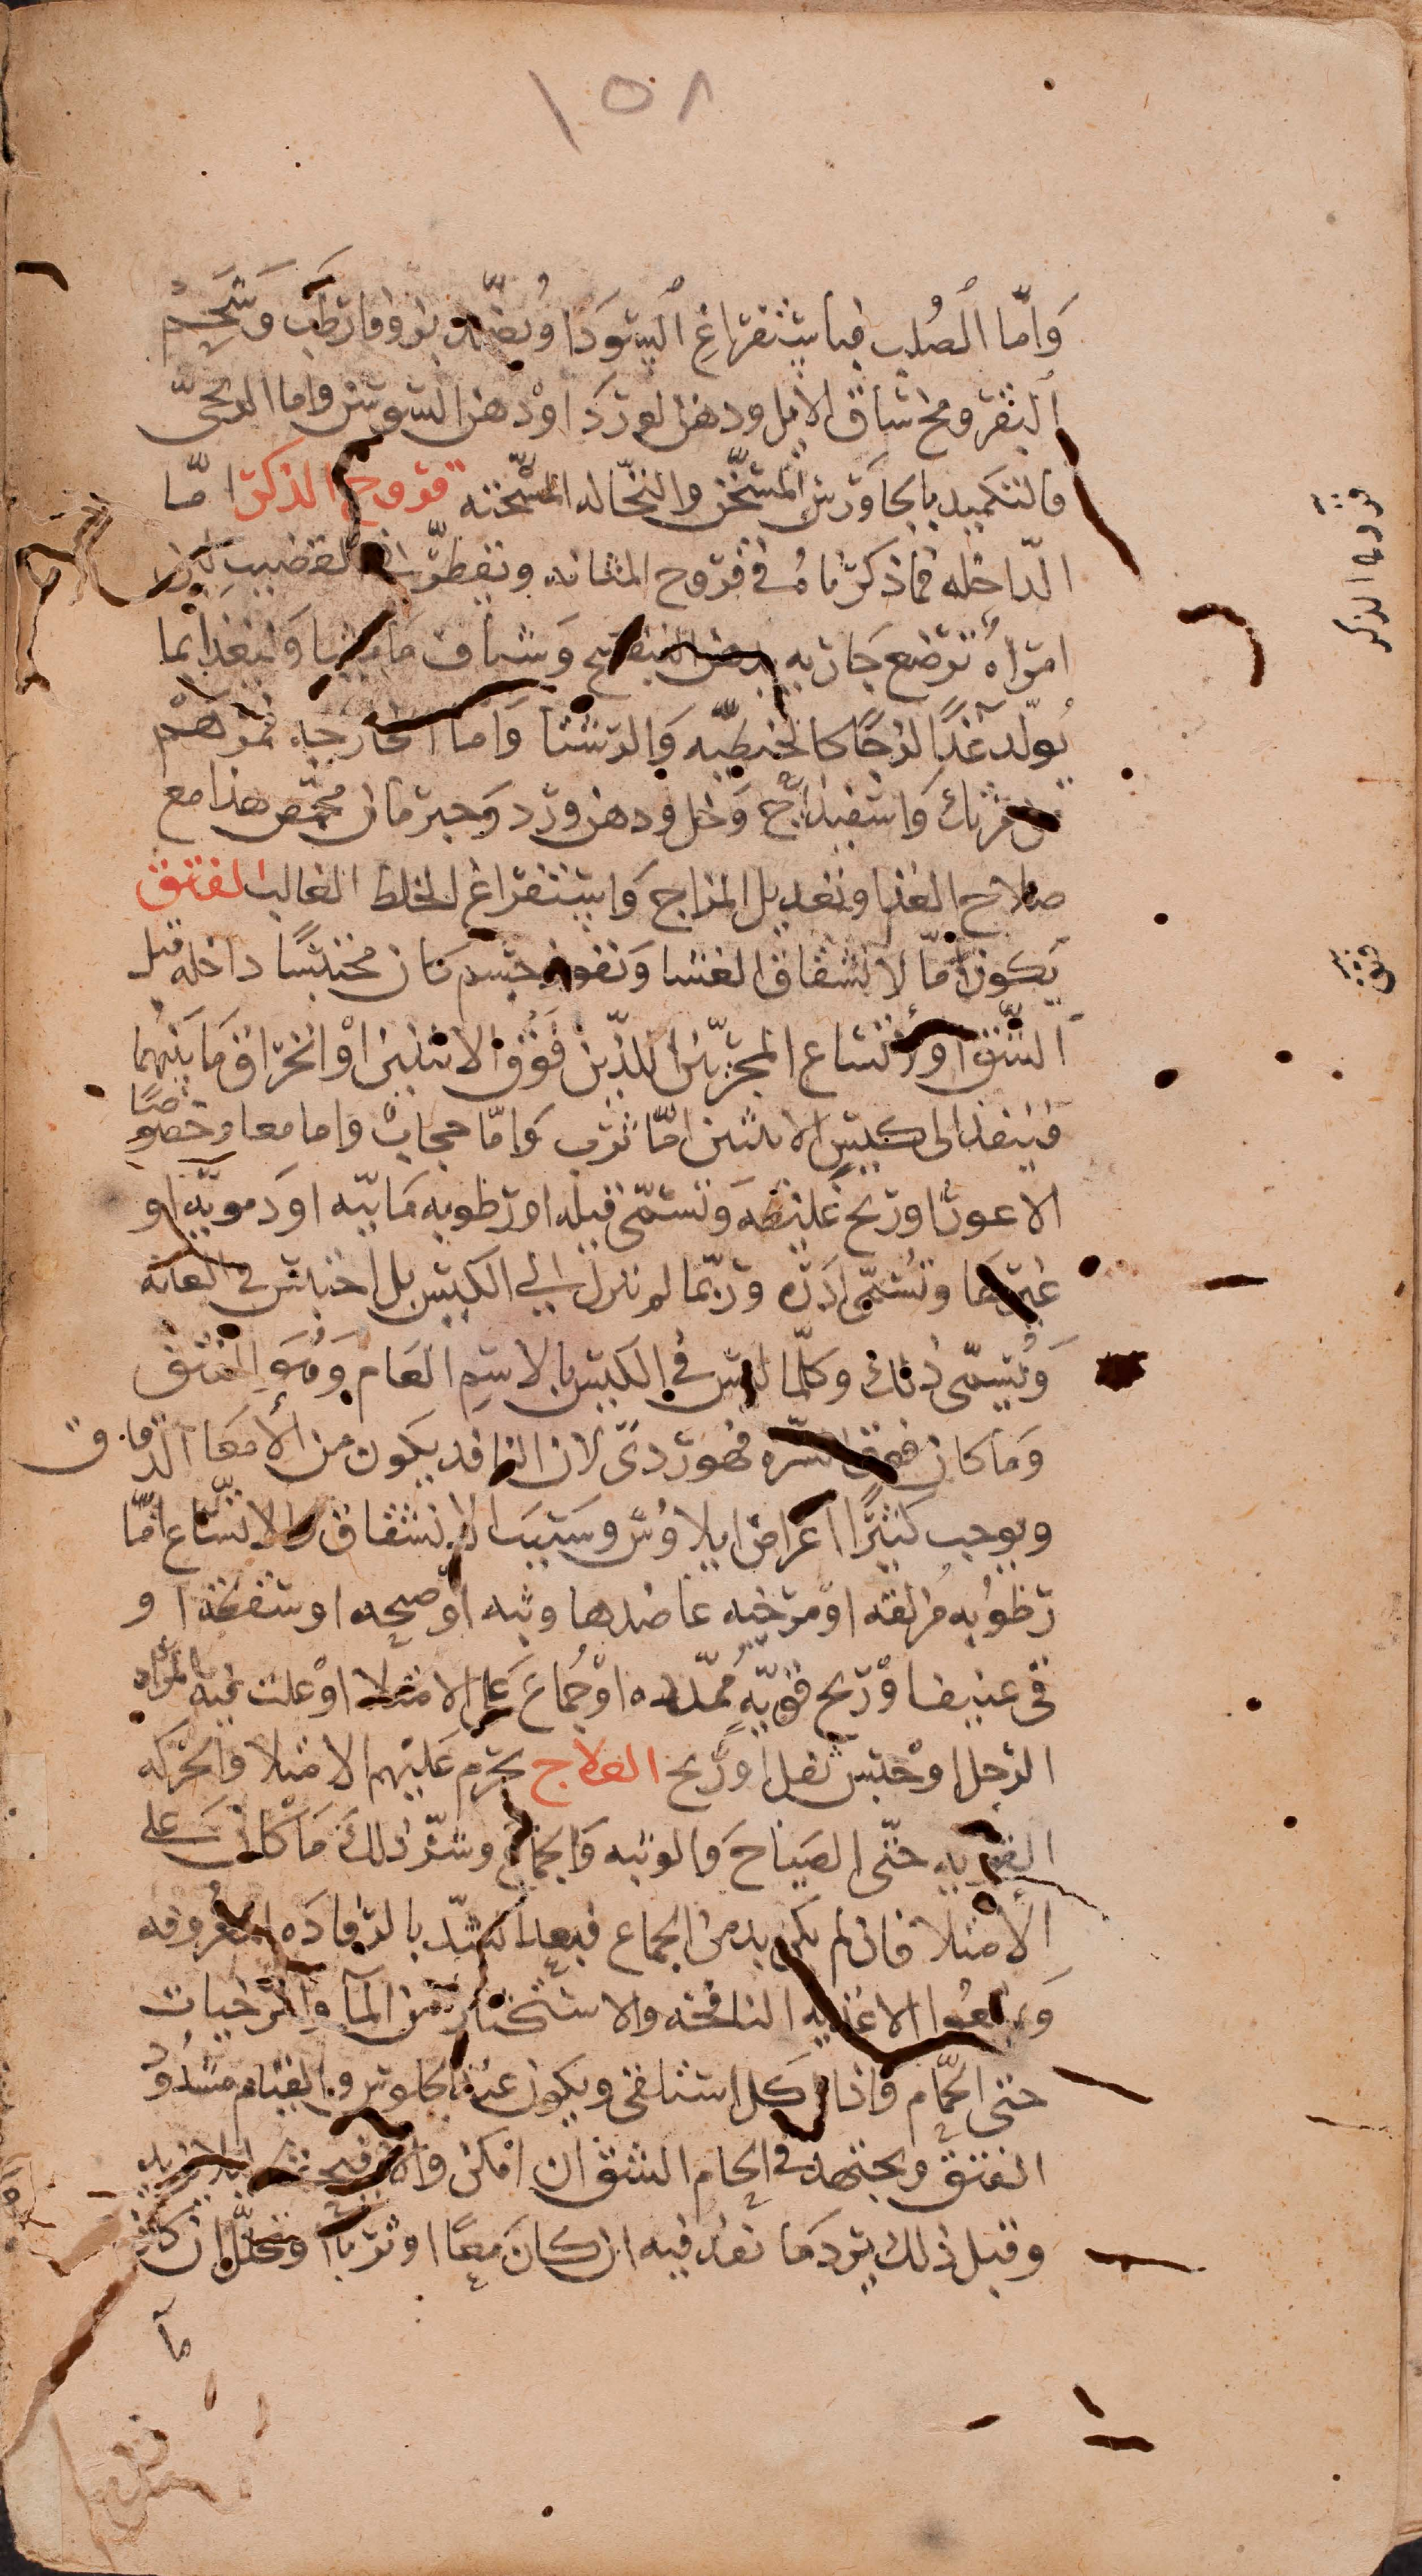 ١٥٨
وَامّا الصُلب فباستفراغ السّودا وتضمّد بزوفا رطب وَشَحم
البقر ومخ ساق الايل ودهن الورد او دهن السوسن واما الريحيّ
فالتكميد بالجاورس المسخّن والنخاله المسخّنه قروح الذكر امّا
الدّاخله فما ذكرناه في قروح المثانه وتقطّر في القضيب لبن
امراه ترضع جاريه بدهن البنفسج وَشياف ماميثا وَليغذا بما
يُولّد غذآ لزجًا كالخبطيّه وَالرشتا وَامّا الخارجه فمرهم
من مرتك وَاسفيذاج وَخل ودهن ورد وَحبر مان محمّص هذا مع
صلاح الغذا وتعديل المزاج وَاستفراغ الخلط الغالب الفتق
يكون امّا لانشقاق الغشا وَنفوذ جسم كان محتبسًا داخله قبل
الشّق او لاتساع المجريّين اللذين فَوْق الانثيين اوْ انخراق مَا بينهما
فينفذ الى كيس الانثيين امّا ثرب وَامّا حجاب واما معا وخصوصًا
الاعور او ريح غليظه وَتسمّى قيله او رطوبه مَائيّه او دمويّه او
غيرهما وتُسمّى ادره وربّما لم تنزل الي الكيس بل احتبس في العانه
وَيُسمّى ذلك وكلّما ليس في الكيس بالاسم العَام وَهُوَ الفتق
وَما كان فوق السّره فهو ردى لان النافذ يكون من الامعَا الدقاق
ويوجب كثيرًا اعراض ايلاوس وسَبَب الانشقاق والاتساع امّا
رطوبه مزلقه او مرخيه عاضدها وثبه او صيحه او سقطه او
قى عنيف اوْ ريح قويّه مُمدّده اوْ جُماع عَلى الامتلا اوْ علت فيه المراه
الرجل اوْ حبس ثفل او ريح العلاج يحرم عَليهم الامتلا والحركه
القويه حتّى الصياحَ وَالوثبه وَالجماع وشرّ ذلك مَا كان على
الامتلا فان لم يكن بد من الجماع فبعد الشّد بالرفاده المعروفه
وَيمنعُوا الاغذيه النافخه والاستكثار من المآ والمرخيات
حتى الحمّام وَاذا اكل استلقى ويكون عند الجلوس والقيام مشدُود
الفتق ويجتهد في الحام الشق ان امكن والا
وقبل ذلك يرد مَا نفذ فيه ان كانَ معًا او ثربًا وتحلّل ان كان
مآ
قروح الذكر
فتق